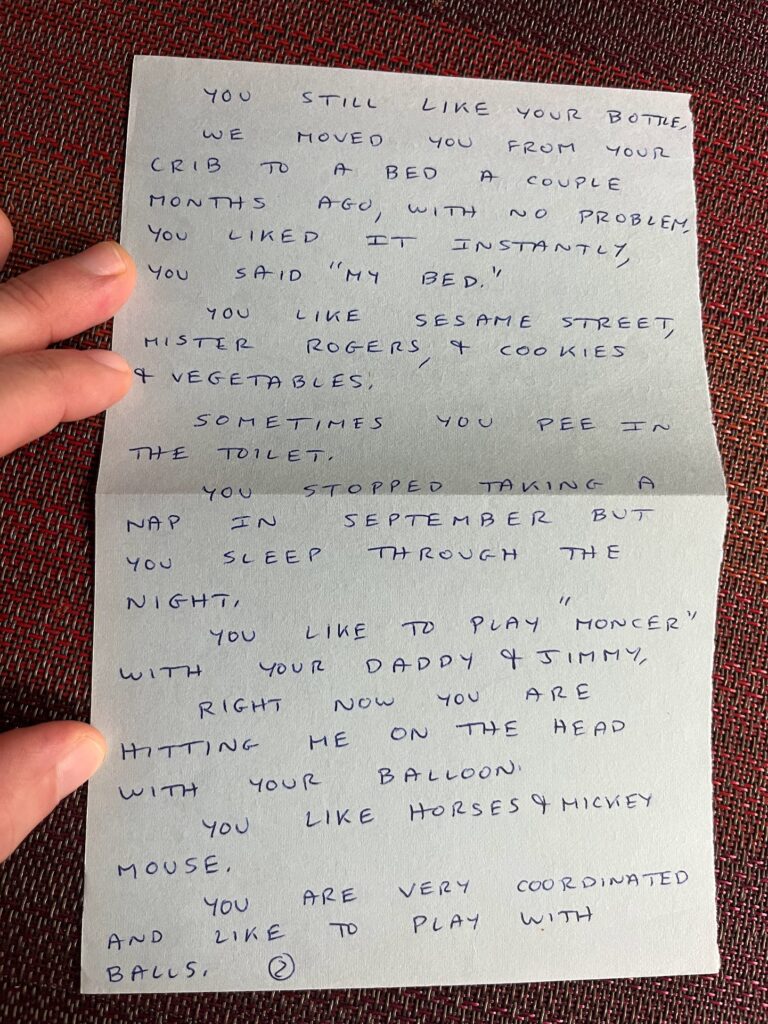 YOU STILL LIKE YOUR BOTTLE.
WE MOVED YOU FROM YOUR
CRIB TO A BED A COUPLE
MONTHS AGO, WITH NO PROBLEM.
YOU LIKED IT INSTANTLY,
YOU SAID "MY BED."
YOU LIKE SESAME STREET,
MISTER ROGERS, & COOKIES
& VEGETABLES.
SOMETIMES YOU PEE IN
THE TOILET.
YOU STOPPED TAKING A
NAP IN SEPTEMBER BUT
YOU SLEEP THROUGH THE
NIGHT.
YOU LIKE TO PLAY "MONCER"
WITH YOUR DADDY & JIMMY.
RIGHT NOW YOU ARE
HITTING ME ON THE HEAD
WITH YOUR BALLOON.
YOU LIKE HORSES & MICKEY
MOUSE.
YOU ARE VERY COORDINATED
AND LIKE TO PLAY WITH
BALLS. ②